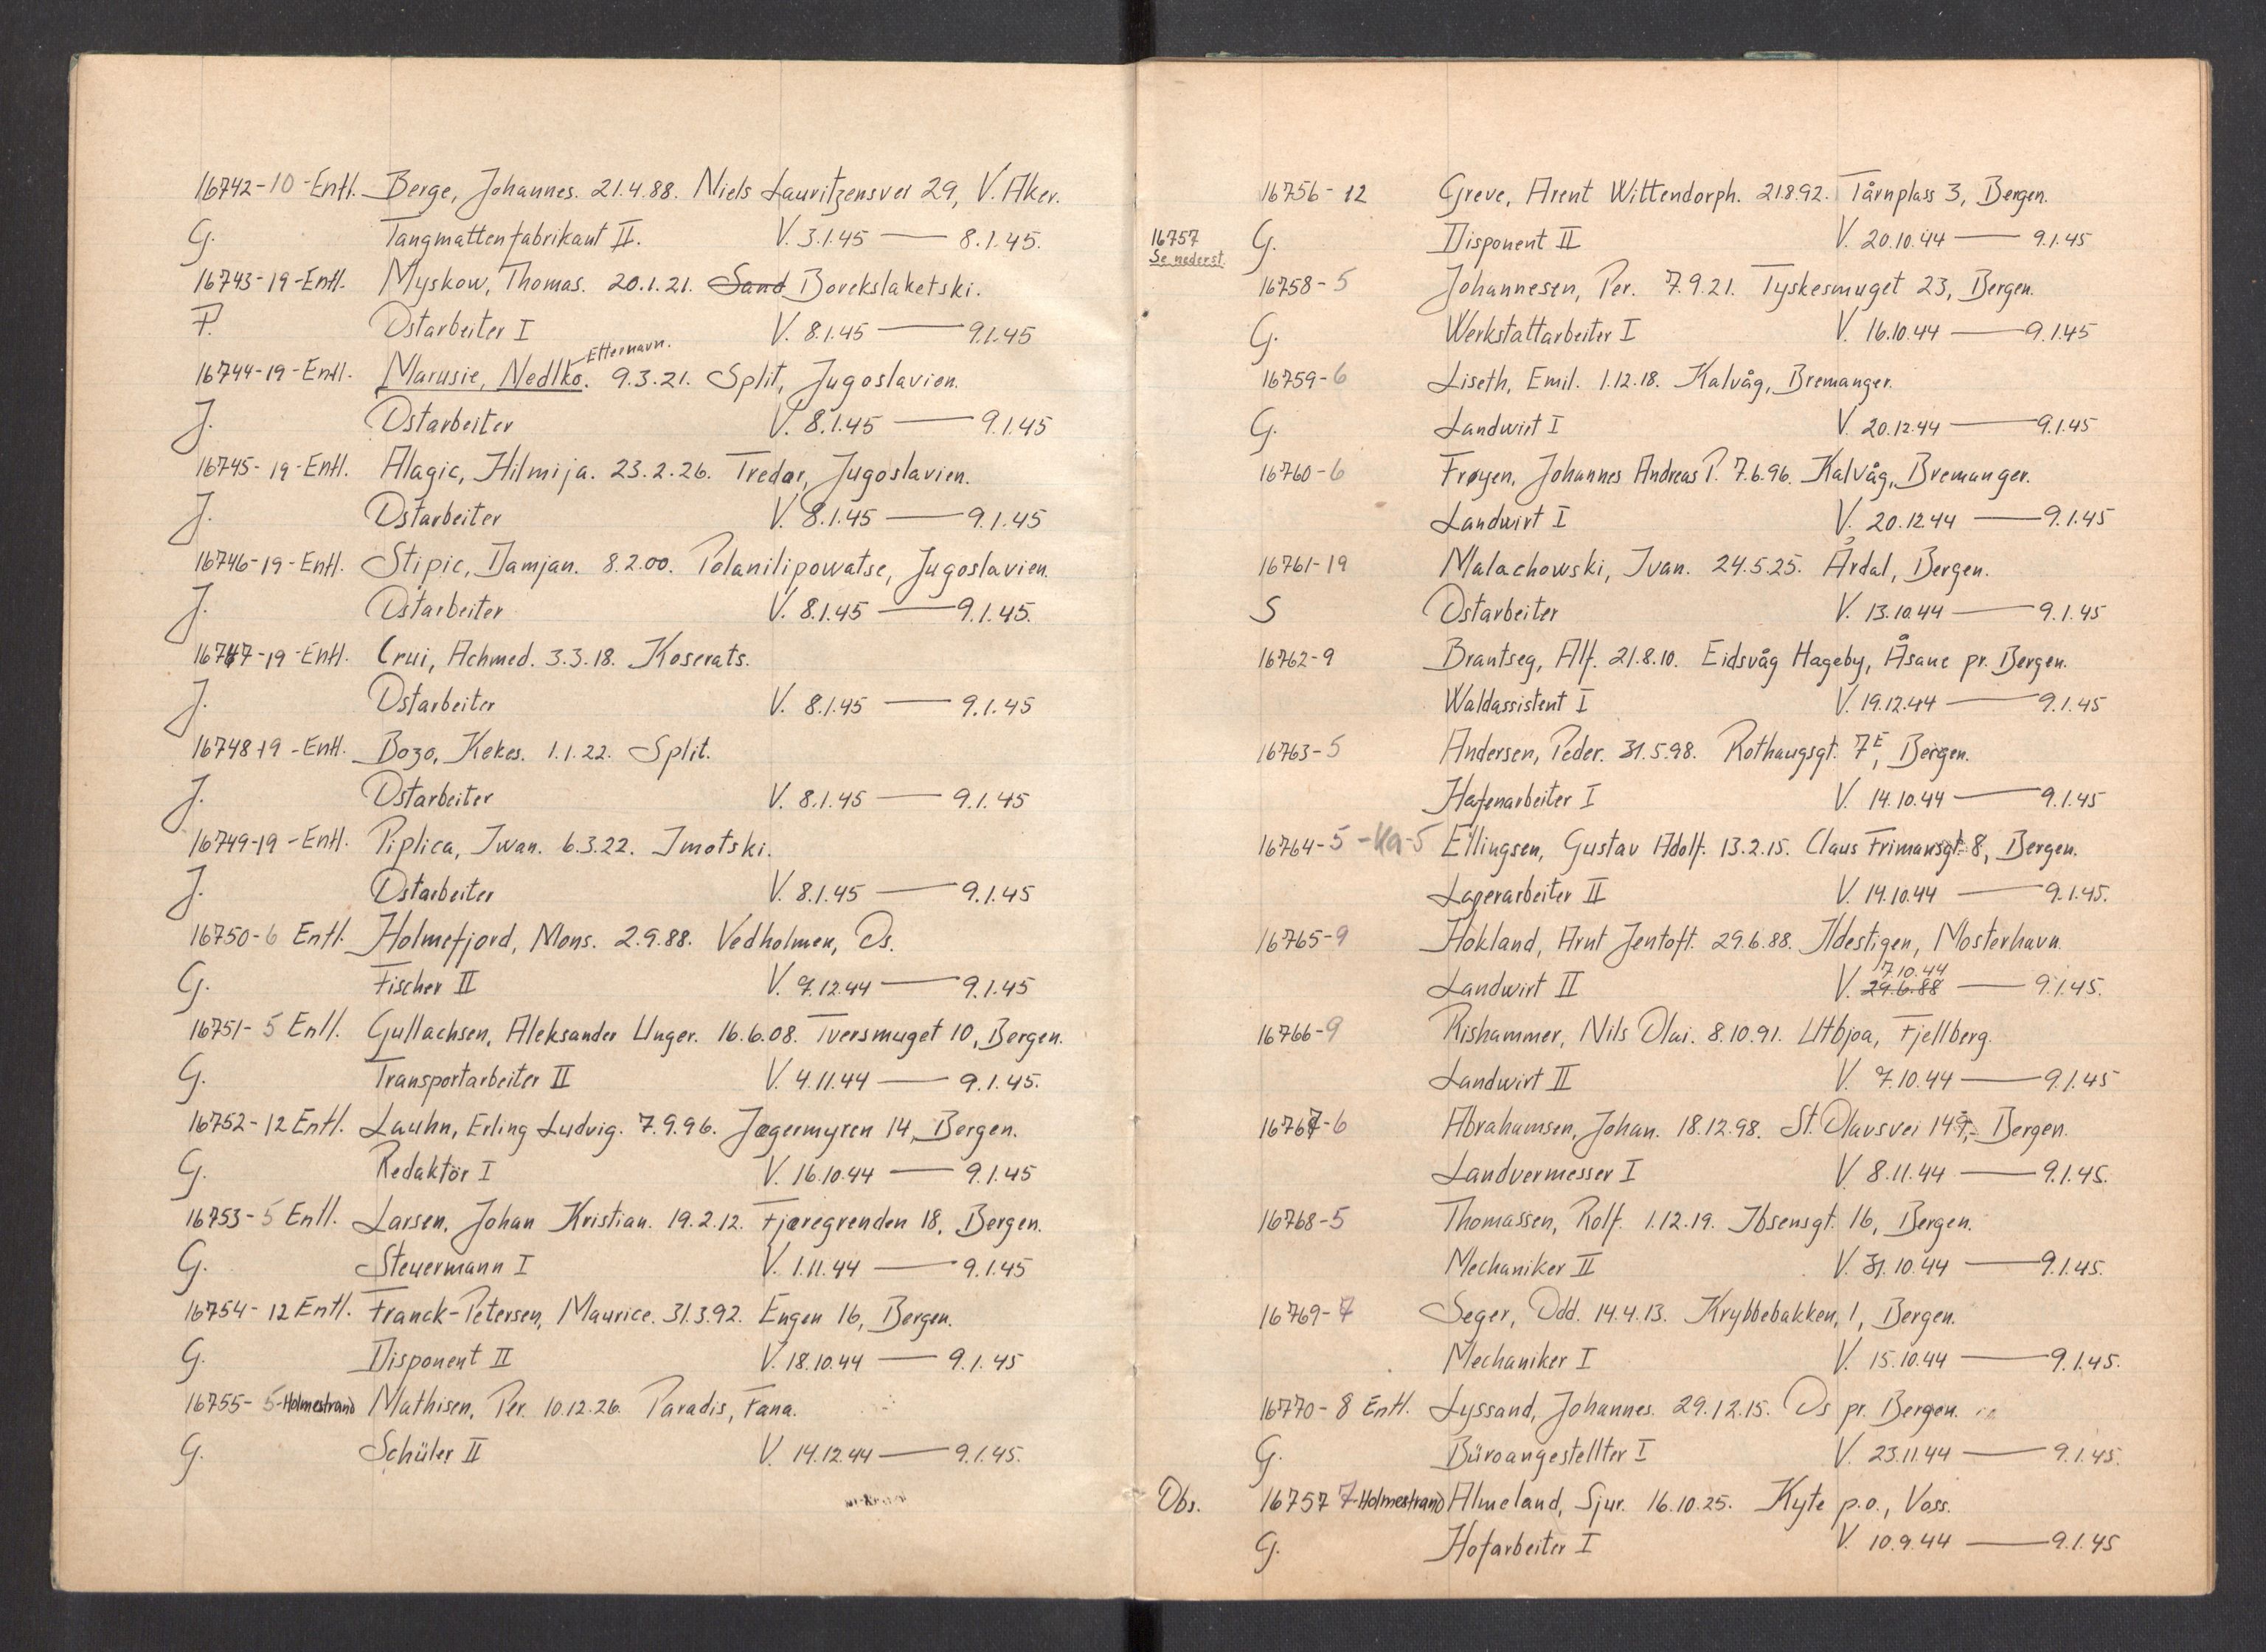 16742-10-Entl. Berge, Johannes. 21.4.88. Niels Lauritzensvei 29, V. Aker.
G. Tangmattenfabrikant II. V. 3.1.45 — 8.1.45.
16743-19-Entl. Myskow, Thomas. 20.1.21. Sand Borekslaketski.
P. Ostarbeiter I V. 8.1.45 — 9.1.45
Etternavn.
16744-19-Entl. Marusic, Nedlko. 9.3.21. Split, Jugoslavien.
J. Ostarbeiter V. 8.1.45 — 9.1.45
16745-19-Entl. Alagic, Hilmija. 23.2.26. Tredor, Jugoslavien.
J. Ostarbeiter V. 8.1.45 — 9.1.45
16746-19-Entl. Stipic, Damjan. 8.2.00. Polanilipowatse, Jugoslavien.
J. Ostarbeiter V. 8.1.45 — 9.1.45.
16747-19-Entl. Crui, Achmed. 3.3.18. Koserats.
J. Ostarbeiter V. 8.1.45 — 9.1.45
16748-19-Entl. Bozo, Kekes. 1.1.22. Split.
J. Ostarbeiter V. 8.1.45 — 9.1.45
16749-19-Entl. Piplica, Iwan. 6.3.22. Imotski.
J. Ostarbeiter V. 8.1.45 — 9.1.45
16750-6 Entl. Holmefjord, Mons. 2.9.88. Vedholmen, Os.
G. Fischer II V. 7.12.44 — 9.1.45
16751-5 Entl. Gullachsen, Aleksander Unger. 16.6.08. Tversmuget 10, Bergen.
G. Transportarbeiter II V. 4.11.44 — 9.1.45.
16752-12 Entl. Lauhn, Erling Ludvig. 7.9.96. Jægermyren 14, Bergen.
G. Redaktör I V. 16.10.44 — 9.1.45
16753-5 Entl. Larsen, Johan Kristian. 19.2.12. Fjæregrenden 18, Bergen.
G. Steuermann I V. 1.11.44 — 9.1.45
16754-12 Entl. Franck-Petersen, Maurice. 31.3.92. Engen 16, Bergen.
G. Disponent II V. 18.10.44 — 9.1.45
16755-5-Holmestrand Mathisen, Per. 10.12.26. Paradis, Fana.
G. Schüler II V. 14.12.44 — 9.1.45.
16756-12 Greve, Arent Wittendorph. 21.8.92. Tårnplass 3, Bergen.
16757 Se nederst. G. Disponent II V. 20.10.44 — 9.1.45
16758-5 Johannesen, Per. 7.9.21. Tyskesmuget 23, Bergen.
G. Werkstattarbeiter I V. 16.10.44 — 9.1.45
16759-6 Liseth, Emil. 1.12.18. Kalvåg, Bremanger.
G. Landwirt I V. 20.12.44 — 9.1.45
16760-6 Frøyen, Johannes Andreas P. 7.6.96. Kalvåg, Bremanger.
Landwirt I V. 20.12.44 — 9.1.45
16761-19 Malachowski, Ivan. 24.5.25. Årdal, Bergen.
S Ostarbeiter V. 13.10.44 — 9.1.45
16762-9 Brantseg, Alf. 21.8.10. Eidsvåg Hageby, Åsane pr. Bergen.
Waldassistent I V. 19.12.44 — 9.1.45
16763-5 Andersen, Peder. 31.5.98. Rothaugsgt. 7E, Bergen.
Hafenarbeiter I V. 14.10.44 — 9.1.45
16764-5 -Ka-5 Ellingsen, Gustav Adolf. 13.2.15. Claus Frimansgt. 8, Bergen.
Lagerarbeiter II V. 14.10.44 — 9.1.45.
16765-9 Hokland, Arnt Jentoft. 29.6.88. Ildestigen, Mosterhavn.
7.10.44
Landwirt II V. 29.6.88 — 9.1.45.
16766-9 Rishammer, Nils Olai. 8.10.91. Utbjoa, Fjellberg.
Landwirt II V. 7.10.44 — 9.1.45
16767-6 Abrahamsen, Johan. 18.12.98. St. Olavsvei 149, Bergen.
Landvermesser I V. 8.11.44 — 9.1.45.
16768-5 Thomassen, Rolf. 1.12.19. Ibsensgt. 16, Bergen.
Mechaniker II V. 31.10.44 — 9.1.45.
16769-7 Seger, Odd. 14.4.13. Krybbebakken, 1, Bergen.
Mechaniker I V. 15.10.44 — 9.1.45.
16770-8 Entl. Lyssand, Johannes. 29.12.15. Os pr. Bergen.
G. Büroangestellter I V. 23.11.44 — 9.1.45.
Obs. 16757 7-Holmestrand Almeland, Sjur. 16.10.25. Kyte p.o., Voss.
G. Hofarbeiter I V. 10.9.44 — 9.1.45